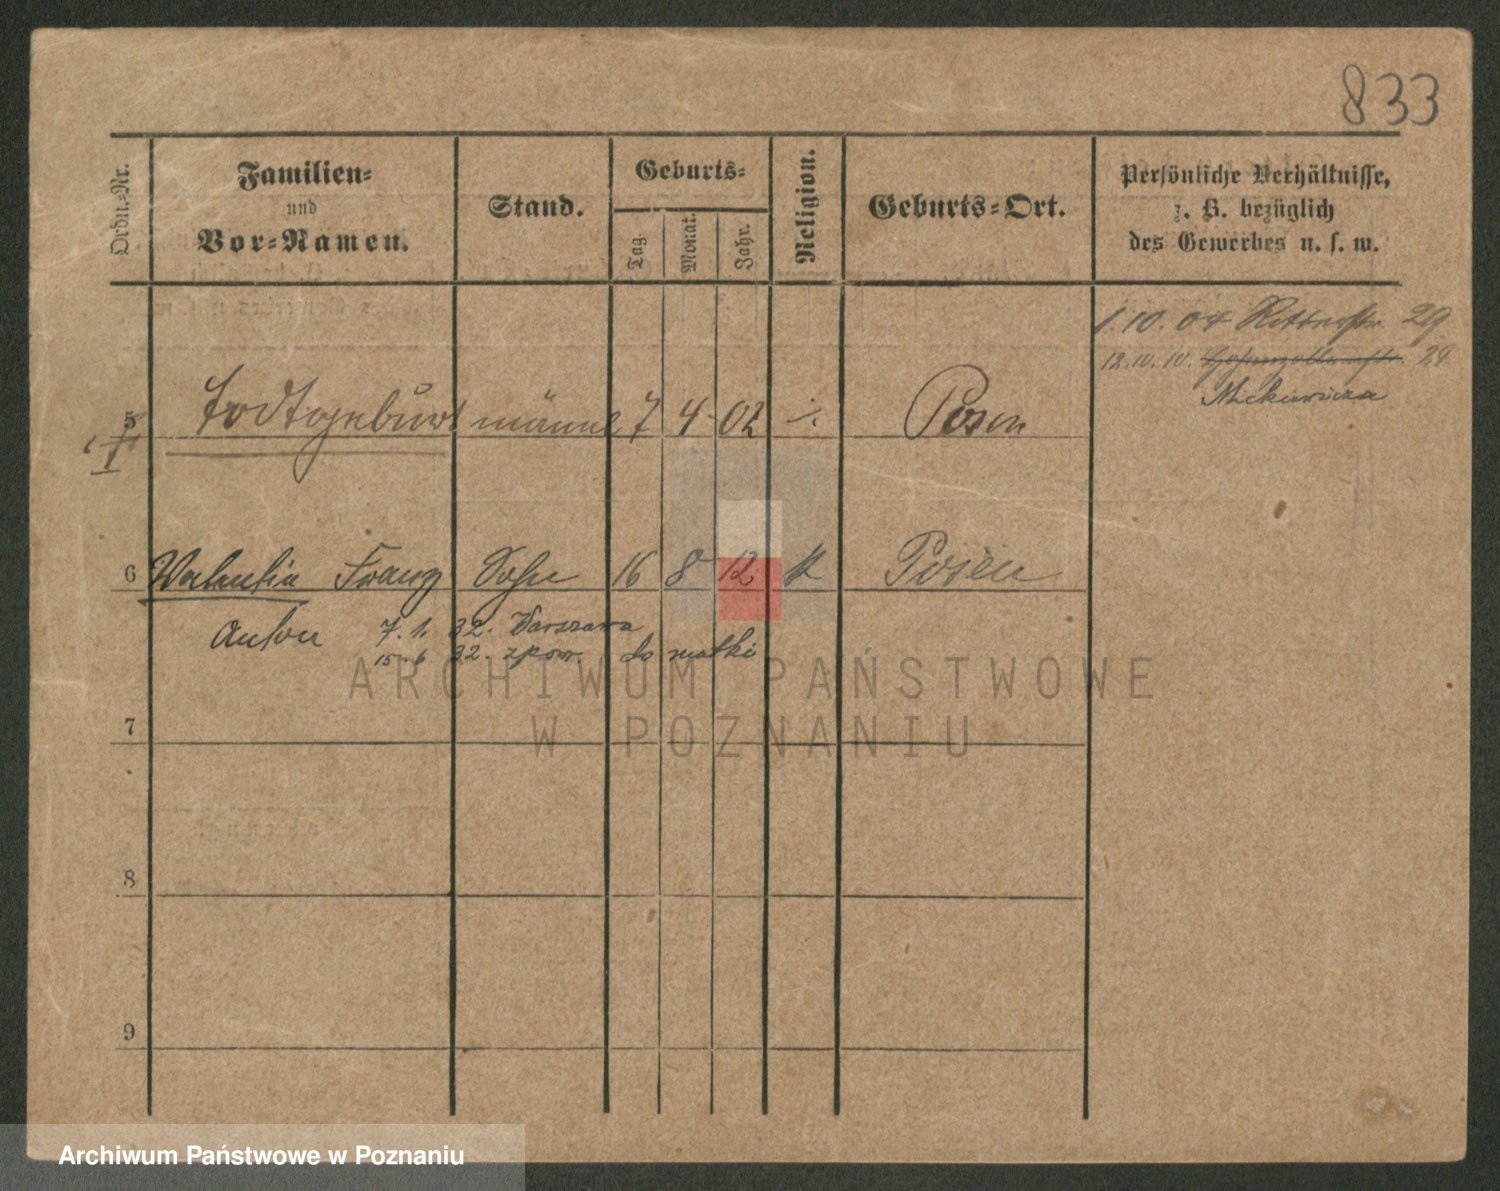 833
Ordn.-Nr.
Familien-
und
Vor-Namen.
Stand.
Geburts-
Tag.
Monat.
Jahr.
Religion.
Geburts-Ort.
Persönliche Verhältnisse,
z. B. bezüglich
des Gewerbes u. s. w.
1.10.04 Ritterstr. 29
12.10.10. Hohenzollernstr. 24
Mickiewicza
5 Todtgeburt männl 7 4 02 ·/. Posen
6 Valentin Franz Sohn 16 8 12 k Posen
Anton 7.1. 32. Warszawa
15 6 32. zpow. do matki
7
8
9
ARCHIWUM PAŃSTWOWE
W POZNANIU
Archiwum Państwowe w Poznaniu